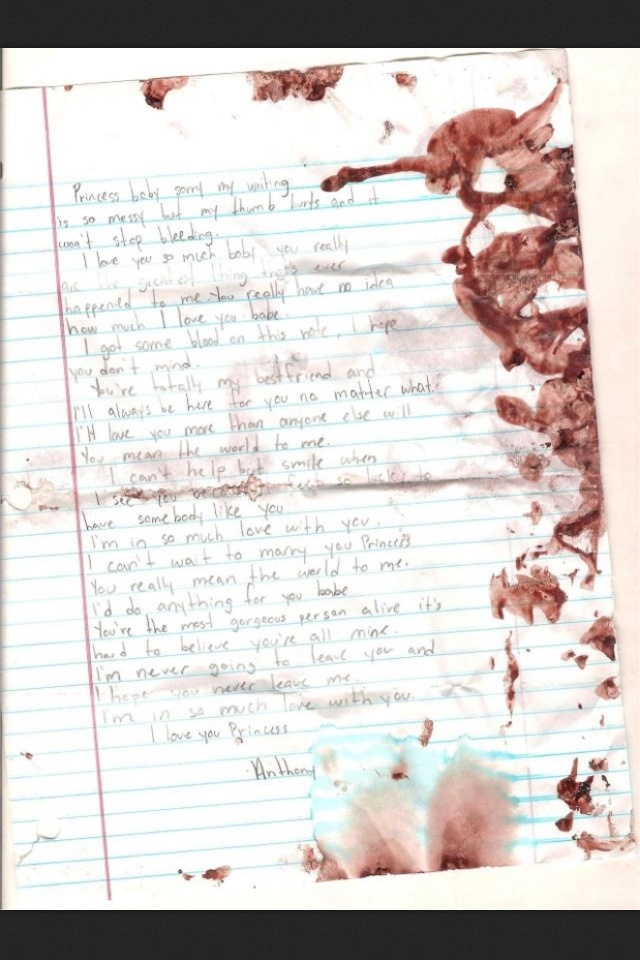 Princess baby sorry my writing
is so messy but my thumb hurts and it
won't stop bleeding.
I love you so much baby, you really
are the greatest thing that's ever
happened to me. You really have no idea
how much I love you babe.
I got some blood on this note, I hope
you don't mind.
You're totally my bestfriend and
I'll always be here for you no matter what.
I'll love you more than anyone else will
You mean the world to me.
I can't help but smile when
I see you because I feel so lucky to
have somebody like you
I'm in so much love with you.
I can't wait to marry you Princess
You really mean the world to me.
I'd do anything for you babe
You're the most gorgeous person alive it's
hard to believe you're all mine.
I'm never going to leave you and
I hope you never leave me.
I'm in so much love with you.
I love you Princess
Anthony